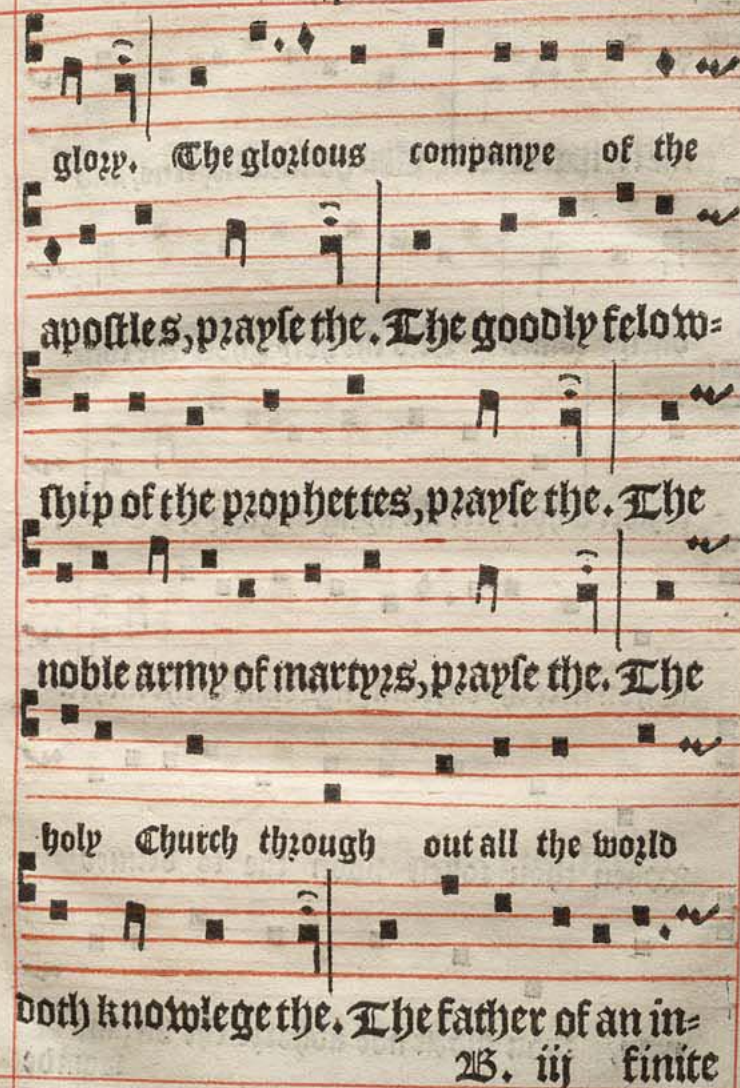 glory. The glorious companye of the
apostles, prayse the. The goodly felow=
ship of the prophettes, prayse the. The
noble army of martyrs, prayse the. The
holy Church through out all the world
doth knowlege the. The father of an in=
B. iij finite